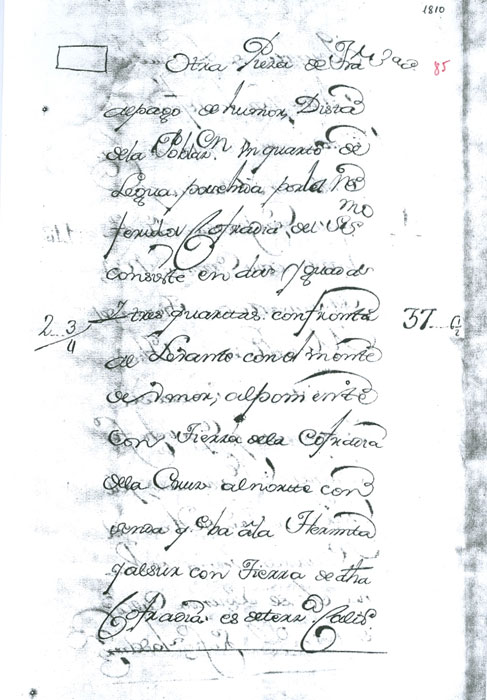 1810
Otra Pieza de Tra
85
al pago de humor, Dista
dela Poblaz.on Un quarto de
Legua, posehida, por los
feridos Cofradia, del SS.mo
consiste en dos yguadas
2 3/4 Y tres quartas confronta 37
de Levante con el monte
de Umor, al ponien te
Con Tierra dela Cofradia
della Cruz al norte con
senda q.e ba a la Hermita
y al sur con Tierra de dha
Cofradia es de terz.a Calid